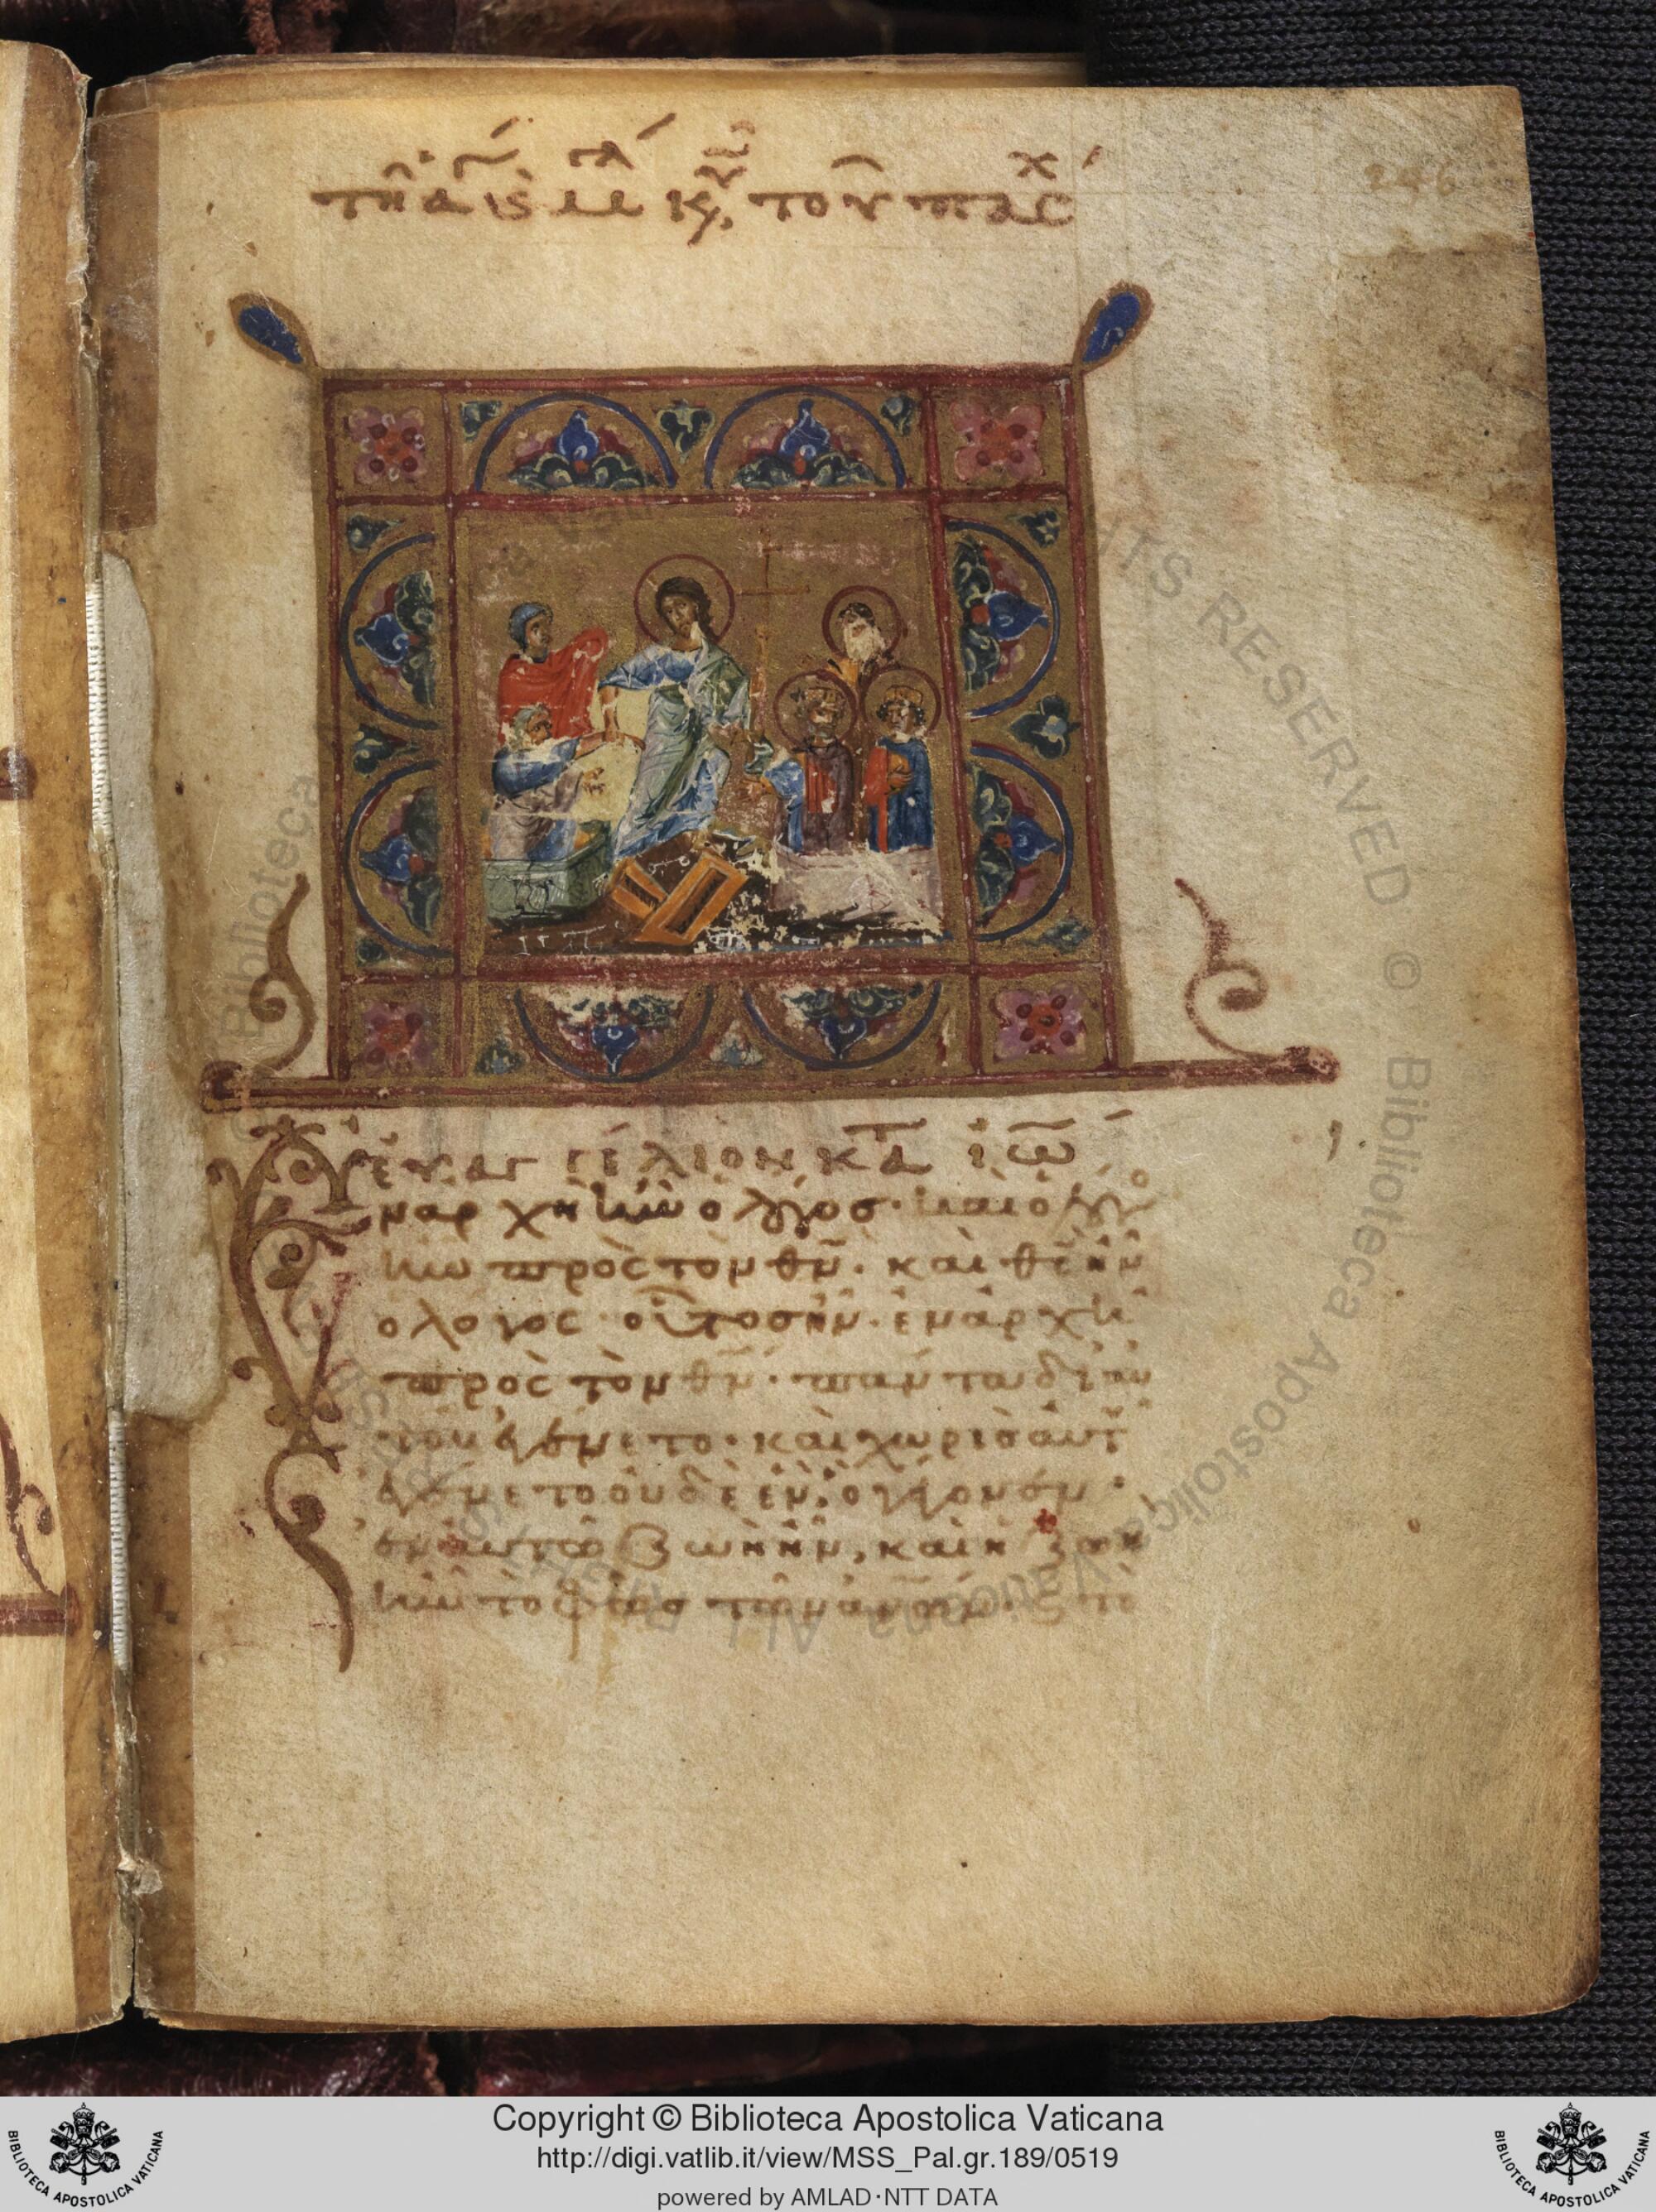 τῆ ἁγία κ μεγάλη κυ, τοῦ πάσχ
246
εὐαγγέλιον κατ ἰω
Ἐν ἀρχῆ ἦν ὁ λόγος· καὶ ὁ λόγο
ἦν πρὸς τὸν θν̄· καὶ θς̄ ἦν
ὁ λόγος· οὗτος ἦν ἐν ἀρχῆ
πρὸς τὸν θν̄· πάντα δι' αυ
τοῦ ἐγένετο· καὶ χωρὶς αὐτ
ἐγένετο οὐδὲ ἕν, ὃ γέγονεν·
ἐν αὐτῶ ζωὴ ἦν, καὶ ἡ ζωὴ
ἦν τὸ φῶς τῶν ἀνων̄· κ τὸ
Copyright © Biblioteca Apostolica Vaticana
http://digi.vatlib.it/view/MSS_Pal.gr.189/0519
powered by AMLAD·NTT DATA
BIBLIOTECA APOSTOLICA VATICANA
BIBLIOTECA APOSTOLICA VATICANA
© Biblioteca Apostolica Vaticana ALL RIGHTS RESERVED